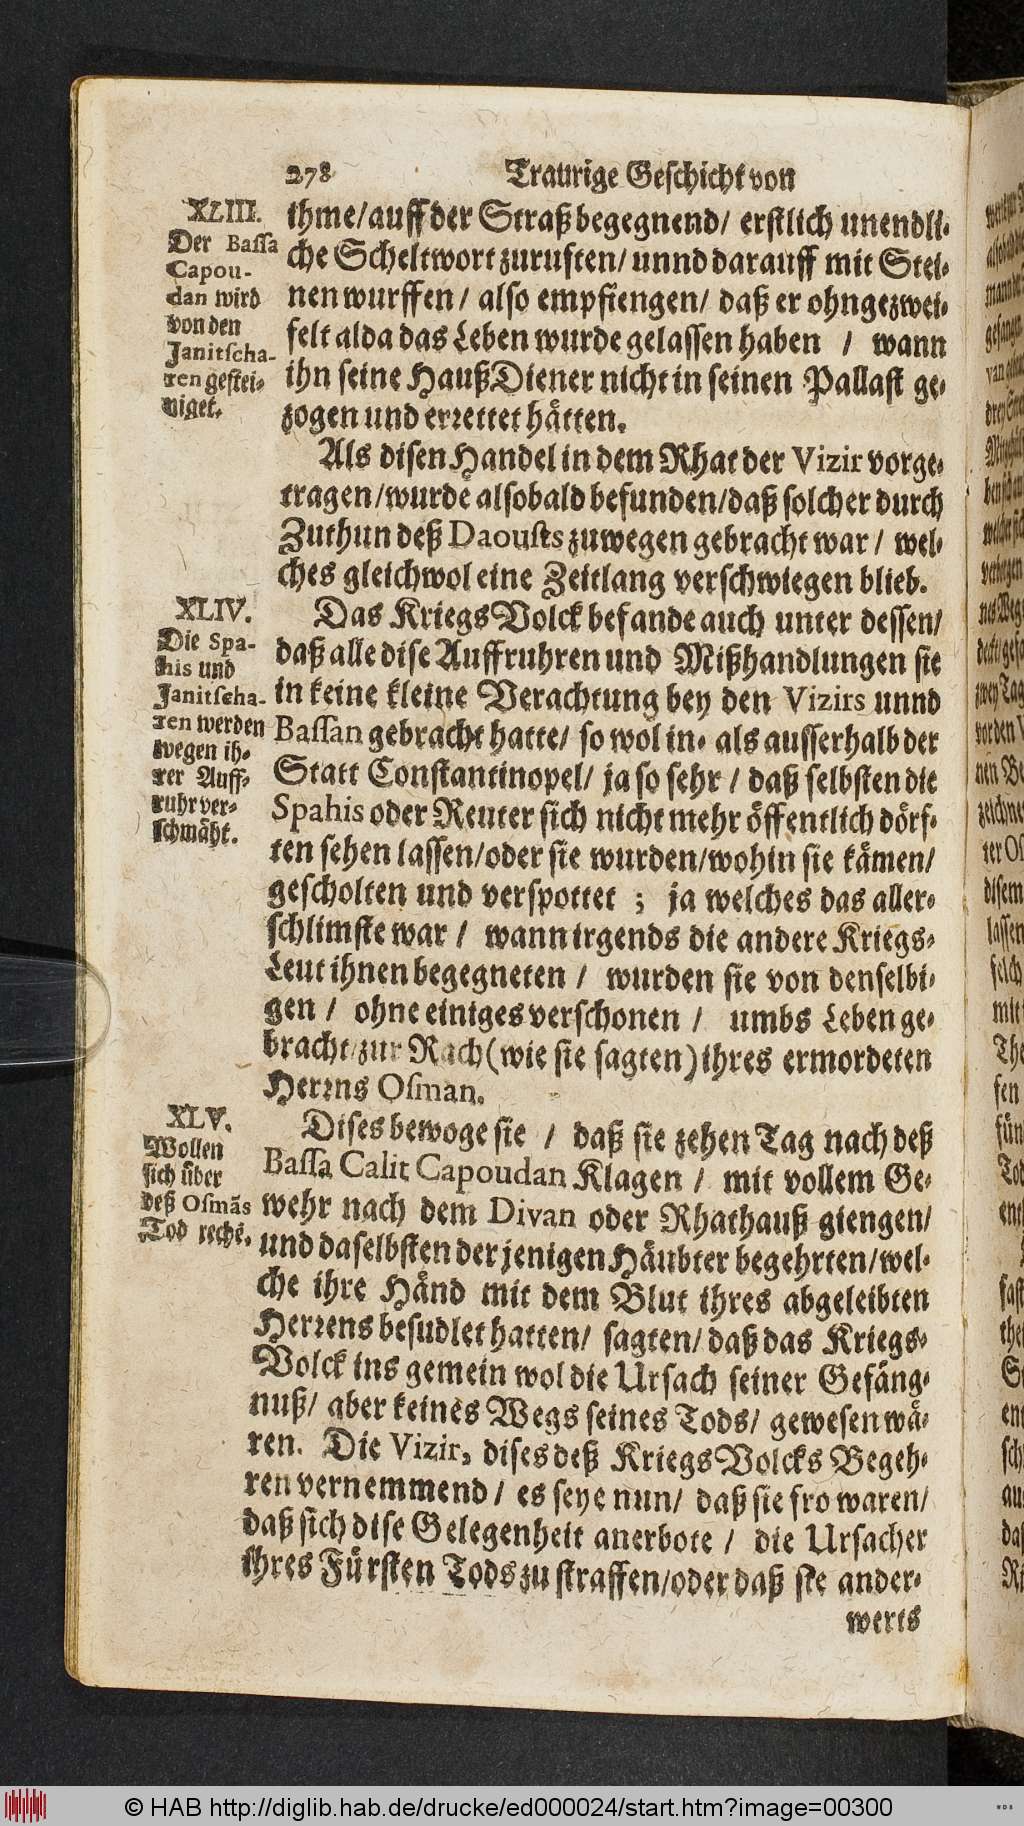 278 Traurige Geschicht von
XLIII.
Der Bassa
Capou-
dan wird
von den
Janitscha-
ren gestei-
niget.
ihme/auff der Straß begegnend/ erstlich unendli-
che Scheltwort zurufften/ unnd darauff mit Stei-
nen wurffen/ also empfiengen/ daß er ohngezwei-
felt alda das Leben wurde gelassen haben / wann
ihn seine HaußDiener nicht in seinen Pallast ge-
zogen und errettet hätten.
Als disen Handel in dem Rhat der Vizir vorge-
tragen/wurde alsobald befunden/daß solcher durch
Zuthun deß Daousts zuwegen gebracht war/ wel-
ches gleichwol eine Zeitlang verschwiegen blieb.
XLIV.
Die Spa-
his und
Janitscha-
ren werden
wegen ih-
rer Auff-
ruhr ver-
schmäht.
Das KriegsVolck befande auch unter dessen/
daß alle dise Auffruhren und Mißhandlungen sie
in keine kleine Verachtung bey den Vizirs unnd
Bassan gebracht hatte/ so wol in- als ausserhalb der
Statt Constantinopel/ ja so sehr / daß selbsten die
Spahis oder Reuter sich nicht mehr öffentlich dörf-
ten sehen lassen/oder sie wurden/wohin sie kämen/
gescholten und verspottet ; ja welches das aller-
schlimste war / wann irgends die andere Kriegs-
Leut ihnen begegneten / wurden sie von denselbi-
gen / ohne einiges verschonen / umbs Leben ge-
bracht/zur Rach (wie sie sagten) ihres ermordeten
Herrns Osman.
XLV.
Wollen
sich über
deß Osmãs
Tod rechẽ.
Dises bewoge sie / daß sie zehen Tag nach deß
Bassa Calit Capoudan Klagen / mit vollem Ge-
wehr nach dem Divan oder Rhathauß giengen/
und daselbsten der jenigen Häubter begehrten/wel-
che ihre Händ mit dem Blut ihres abgeleibten
Herrens besudlet hatten/ sagten/ daß das Kriegs-
Volck ins gemein wol die Ursach seiner Gefäng-
nuß/ aber keines Wegs seines Tods/ gewesen wä-
ren. Die Vizir, dises deß KriegsVolcks Begeh-
ren vernemmend / es seye nun/ daß sie fro waren/
daß sich dise Gelegenheit anerbote / die Ursacher
ihres Fürsten Tods zu straffen/oder daß sie ander-
werts
© HAB http://diglib.hab.de/drucke/ed000024/start.htm?image=00300